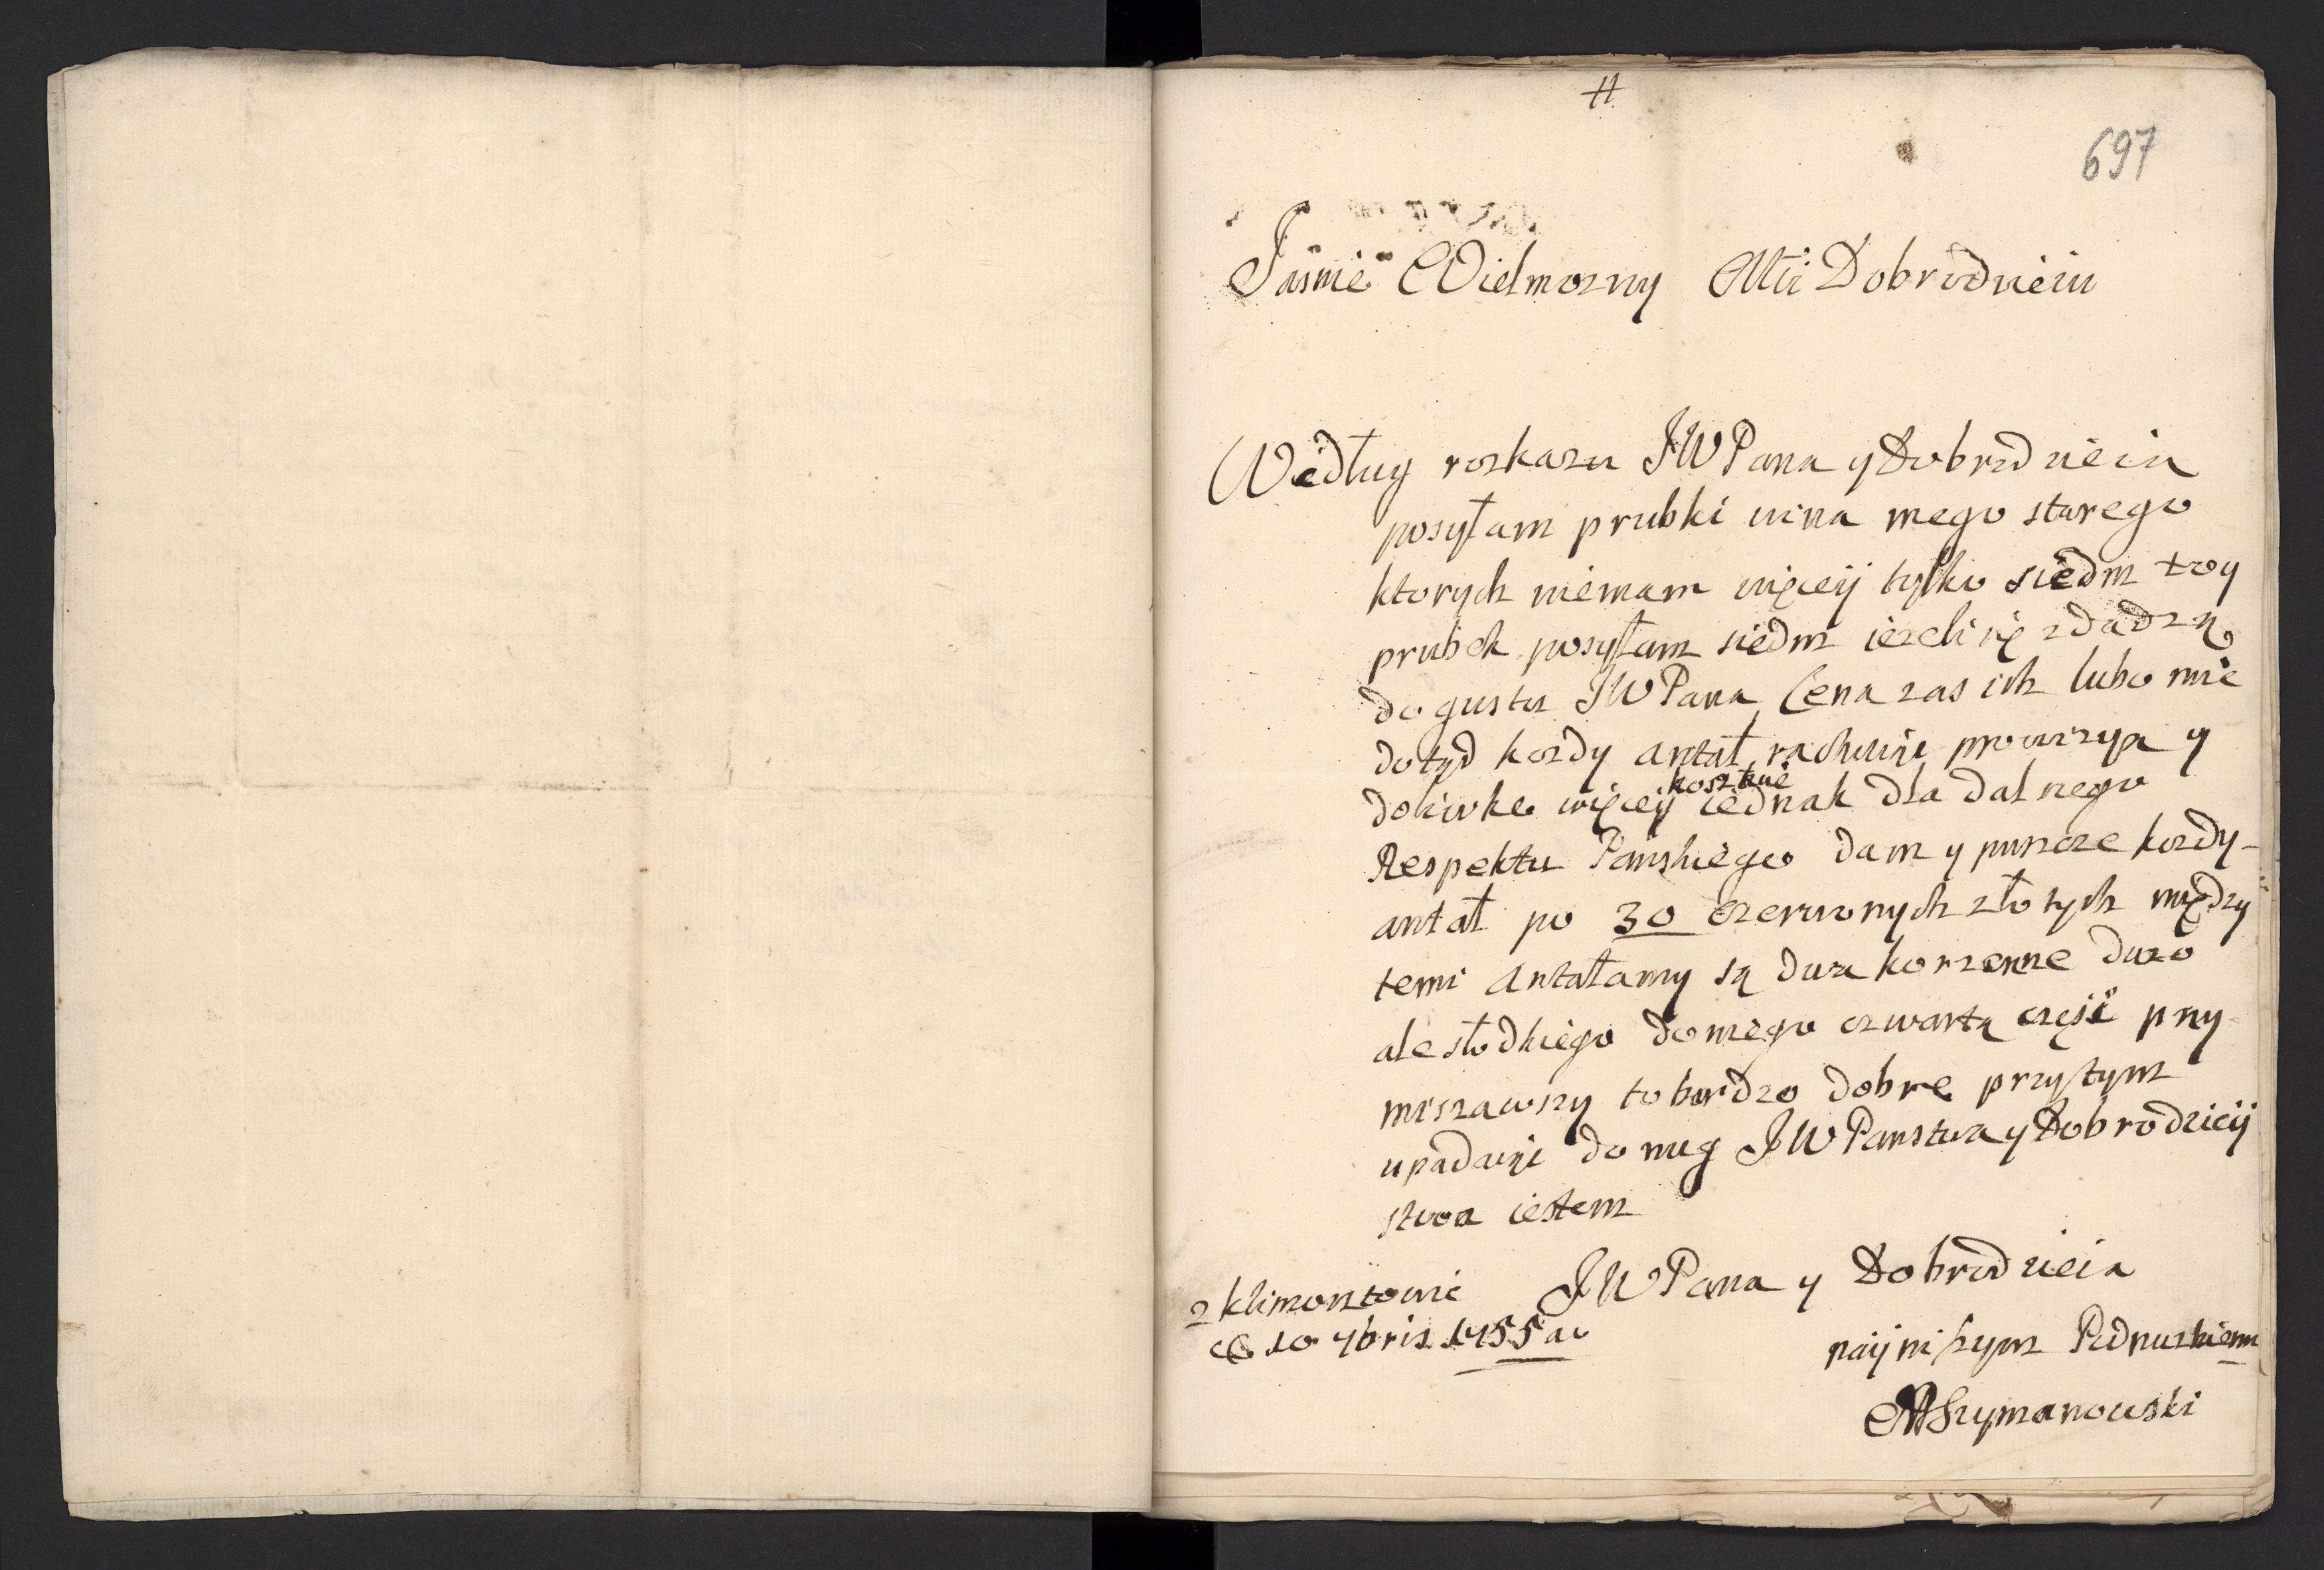 #
697
Jasnie Wielmozny Mci Dobrodzieiu
Według rozkazu JWPana y Dobrodzieia
posyłam prubki wina mego starego
ktorych niemam więceij tylko siedm
prubek posyłam siedm iezeli się zdadzą
do gustu JWPana Cena zas ich lubo mie
dotąd kozdy antał rachuiąc prowizyą y
dolivke więceij kosztuie iednak dla dalnego
Respektu Panskiego dam y puszcze kozdy
antał po 30 czerwonych złotych między
temi Antałamy są dwa korzenne duzo
ale słodkiego do niego czwartą częsć przy
miszawszy to bardzo dobre przytym
upadaiąc do nug JWPanstwa y Dobrodzieij
stwa iestem
JWPana y Dobrodzieia
z Klimontowie
10 7bris 1755
naijniszym Podnuszkiem
Szymanowski